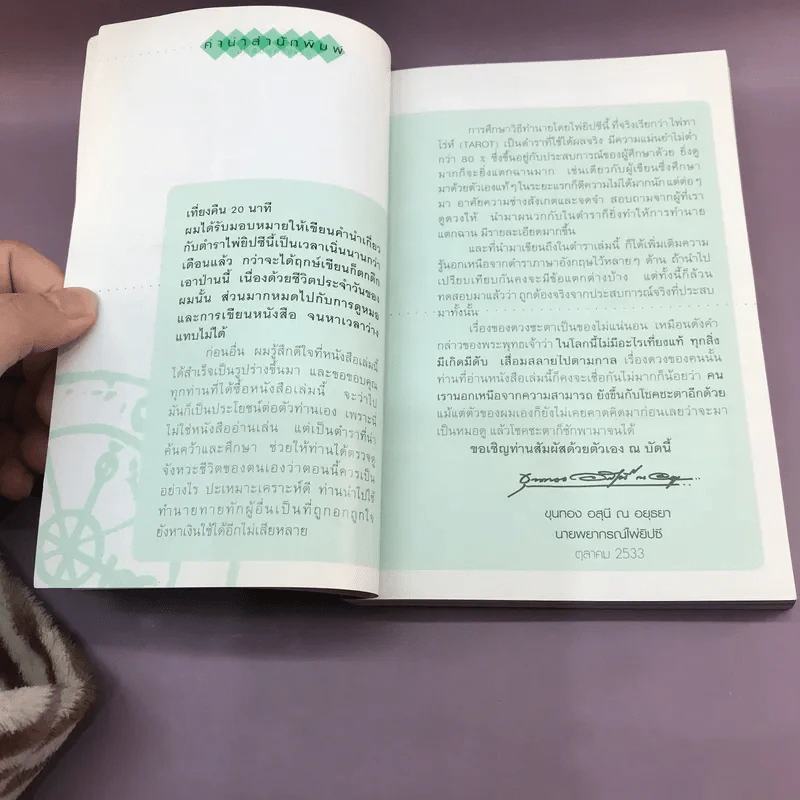 คำนำสำนักพิมพ์
เที่ยงคืน 20 นาที
ผมได้รับมอบหมายให้เขียนคำนำเกี่ยว
กับตำราไพ่ยิปซีนี้เป็นเวลาเนิ่นนานกว่า
เดือนแล้ว กว่าจะได้ฤกษ์เขียนก็ตกดึก
เอาป่านนี้ เนื่องด้วยชีวิตประจำวันของ
ผมนั้น ส่วนมากหมดไปกับการดูหมอ
และการเขียนหนังสือ จนหาเวลาว่าง
แทบไม่ได้
ก่อนอื่น ผมรู้สึกดีใจที่หนังสือเล่มนี้
ได้สำเร็จเป็นรูปร่างขึ้นมา และขอขอบคุณ
ทุกท่านที่ได้ซื้อหนังสือเล่มนี้ จะว่าไป
มันก็เป็นประโยชน์ต่อตัวท่านเอง เพราะนี่
ไม่ใช่หนังสืออ่านเล่น แต่เป็นตำราที่น่า
ค้นคว้าและศึกษา ช่วยให้ท่านได้ตรวจดู
จังหวะชีวิตของตนเองว่าตอนนี้ควรเป็น
อย่างไร ปะเหมาะเคราะห์ดี ท่านนำไปใช้
ทำนายทายทักผู้อื่นเป็นที่ถูกอกถูกใจ
ยังหาเงินใช้ได้อีกไม่เสียหลาย
การศึกษาวิธีทำนายโดยไพ่ยิปซีนี้ ที่จริงเรียกว่า ไพ่ทา
โร่ห์ (TAROT) เป็นตำราที่ใช้ได้ผลจริง มีความแม่นยำไม่ต่ำ
กว่า 80 % ซึ่งขึ้นอยู่กับประสบการณ์ของผู้ศึกษาด้วย ยิ่งดู
มากก็จะยิ่งแตกฉานมาก เช่นเดียวกับผู้เขียนซึ่งศึกษา
มาด้วยตัวเองแท้ๆ ในระยะแรกก็ตีความไม่ได้มากนัก แต่ต่อๆ
มา อาศัยความช่างสังเกตและจดจำ สอบถามจากผู้ที่เรา
ดูดวงให้ นำมาผนวกกับในตำราก็ยิ่งทำให้การทำนาย
แตกฉาน มีรายละเอียดมากขึ้น
และที่นำมาเขียนถึงในตำราเล่มนี้ ก็ได้เพิ่มเติมความ
รู้นอกเหนือจากตำราภาษาอังกฤษไว้หลายๆ ด้าน ถ้านำไป
เปรียบเทียบกันคงจะมีข้อแตกต่างบ้าง แต่ทั้งนี้ก็ล้วน
ทดสอบมาแล้วว่า ถูกต้องจริงจากประสบการณ์จริงที่ประสบ
มาทั้งนั้น
เรื่องของดวงชะตาเป็นของไม่แน่นอน เหมือนดังคำ
กล่าวของพระพุทธเจ้าว่า ในโลกนี้ไม่มีอะไรเที่ยงแท้ ทุกสิ่ง
มีเกิดมีดับ เสื่อมสลายไปตามกาล เรื่องดวงของคนนั้น
ท่านที่อ่านหนังสือเล่มนี้ก็คงจะเชื่อกันไม่มากก็น้อยว่า คน
เรานอกเหนือจากความสามารถ ยังขึ้นกับโชคชะตาอีกด้วย
แม้แต่ตัวของผมเองก็ยังไม่เคยคาดคิดมาก่อนเลยว่าจะมา
เป็นหมอดู แล้วโชคชะตาก็ชักพามาจนได้
ขอเชิญท่านสัมผัสด้วยตัวเอง ณ บัดนี้
ขุนทอง อสุนี ณ อยุธยา
ขุนทอง อสุนี ณ อยุธยา
นายพยากรณ์ไพ่ยิปซี
ตุลาคม 2533